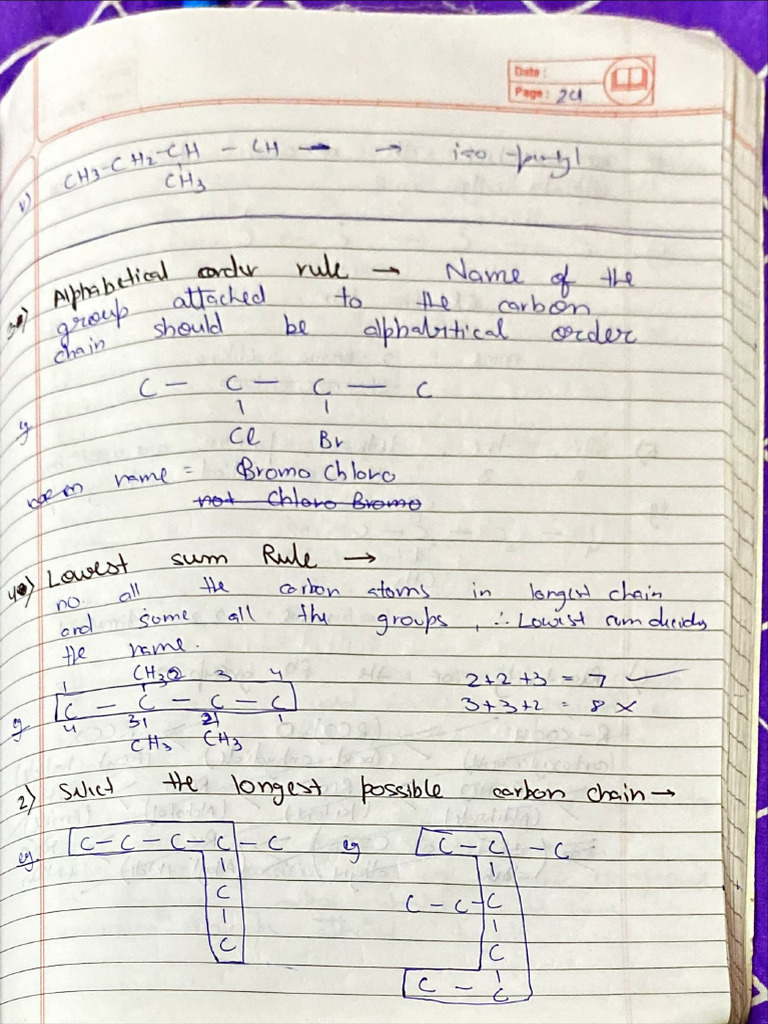 Date :
Page : 24
v) CH3-CH2-CH - CH - → iso -pentyl
CH3
3) Alphabetical order rule → Name of the
group attached to the carbon
chain should be alphabitical order
C - C - C - C
eg
Cl Br
name = Bromo Chloro
not Chloro Bromo
4) Lowest sum Rule →
no. all the carbon atoms in longest chain
and some all the groups, ∴ Lowest sum decides
the name.
1 CH3 2 3 4
2+2+3 = 7 ✓
eg C - C - C - C
3+3+2 = 8 ×
4 3 2 1
CH3 CH3
2) Select the longest possible carbon chain →
eg C-C-C-C-C eg C-C-C
C C-C-C
C C
C - C